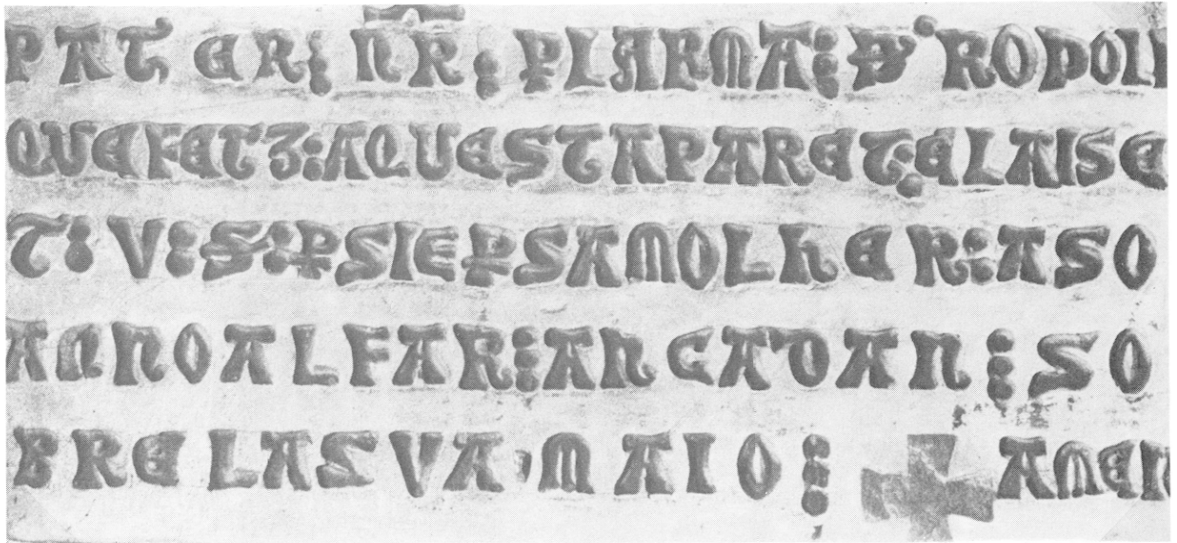 PATER⁝ NR⁝ PLARMA⁝ D ROPOLI
QUEFETZ:AQUESTAPARET:ELAISE
T: V:S:PSIEPSAMOLhER:ASO
ANNOALFAR⁝AN CATDAN⁝SO
BRE LASVA·MAIO⁝ ✠ AMEN